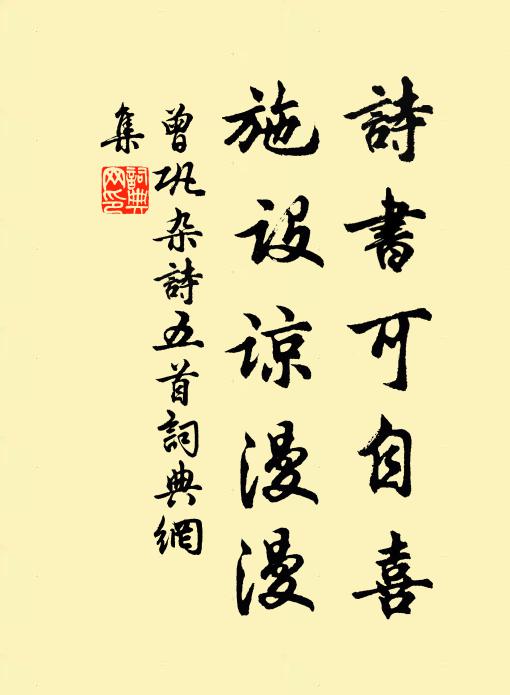 詩書可自喜
施設諒漫漫
曾巩杂詩五首詞典網
集
詞典網印